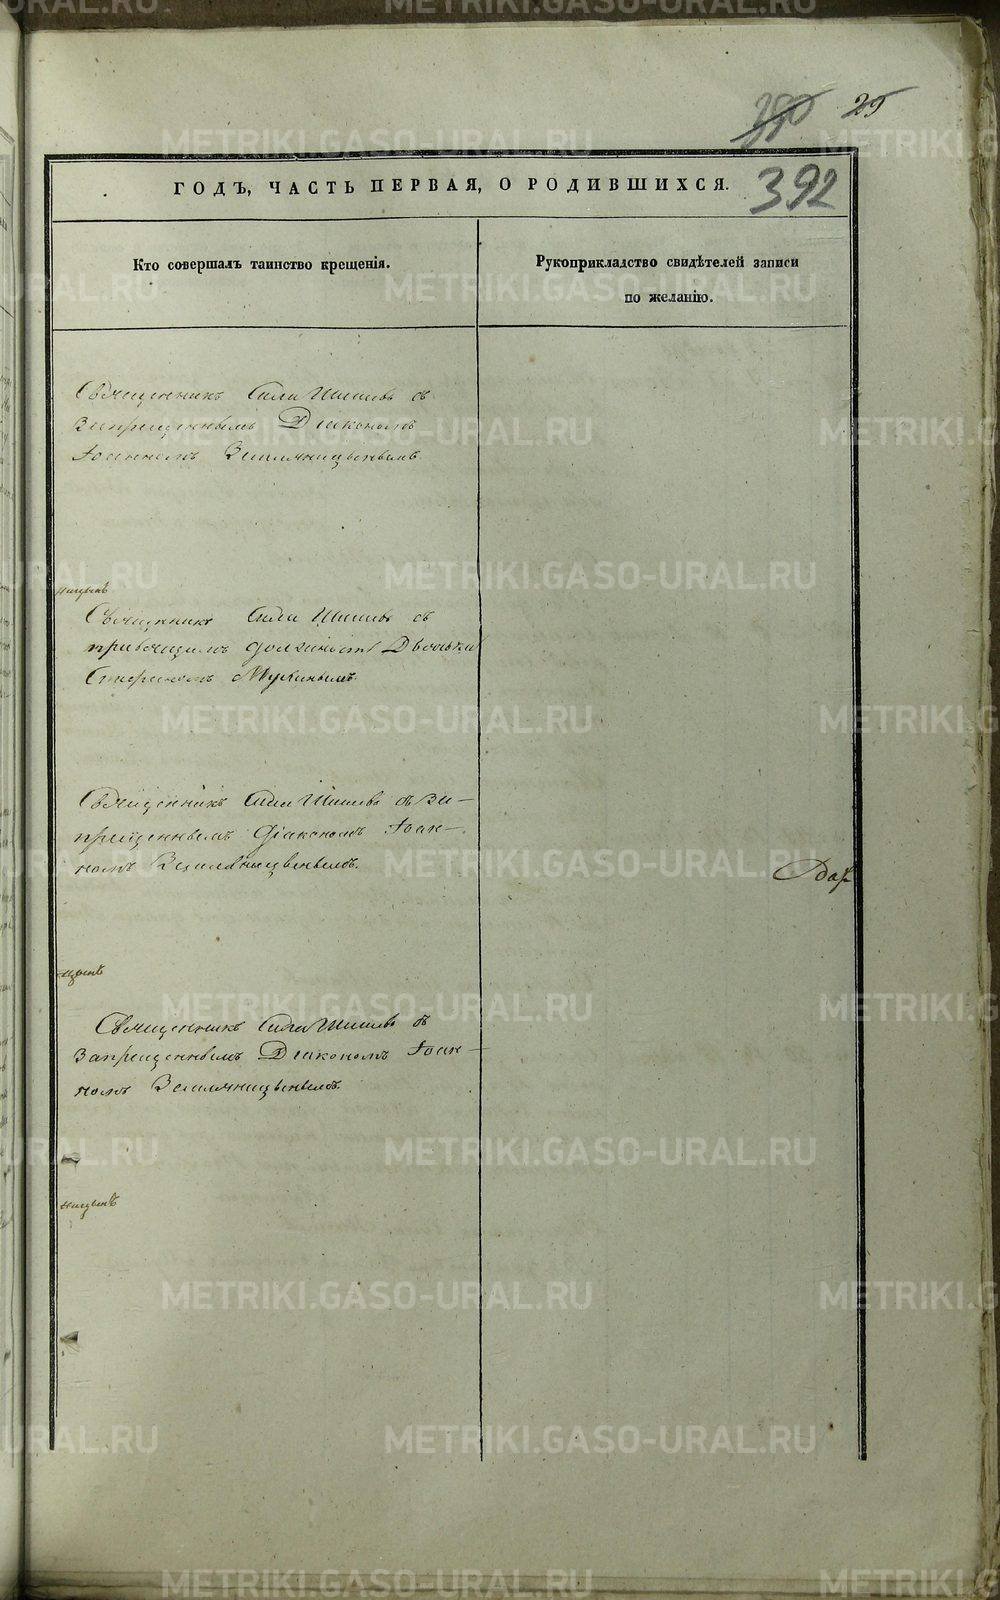 380 25
ГОДЪ, ЧАСТЬ ПЕРВАЯ, О РОДИВШИХСЯ.
392
Кто совершалъ таинство крещенія.
Рукоприкладство свидѣтелей записи
по желанію.
Священникъ Сила Шишевъ съ
Запрещеннымъ Діакономъ
Іоанномъ
Священникъ Сила Шишевъ съ
правящимъ должность Дьячка
Стефаномъ Мукинымъ.
Священникъ Сила Шишевъ съ за-
прещеннымъ Діакономъ Іоан-
номъ
Священникъ Сила Шишевъ съ
Запрещеннымъ Діакономъ Іоан-
номъ
METRIKI.GASO-URAL.RU